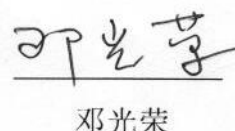 邓光荣
邓光荣